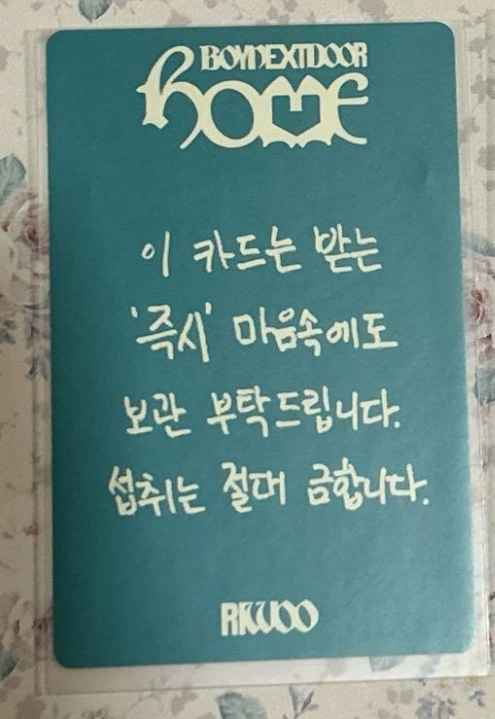 BOYNEXTDOOR
HOME
이 카드는 받는
'즉시' 마음속에도
보관 부탁드립니다.
섭취는 절대 금합니다.
RIWOO